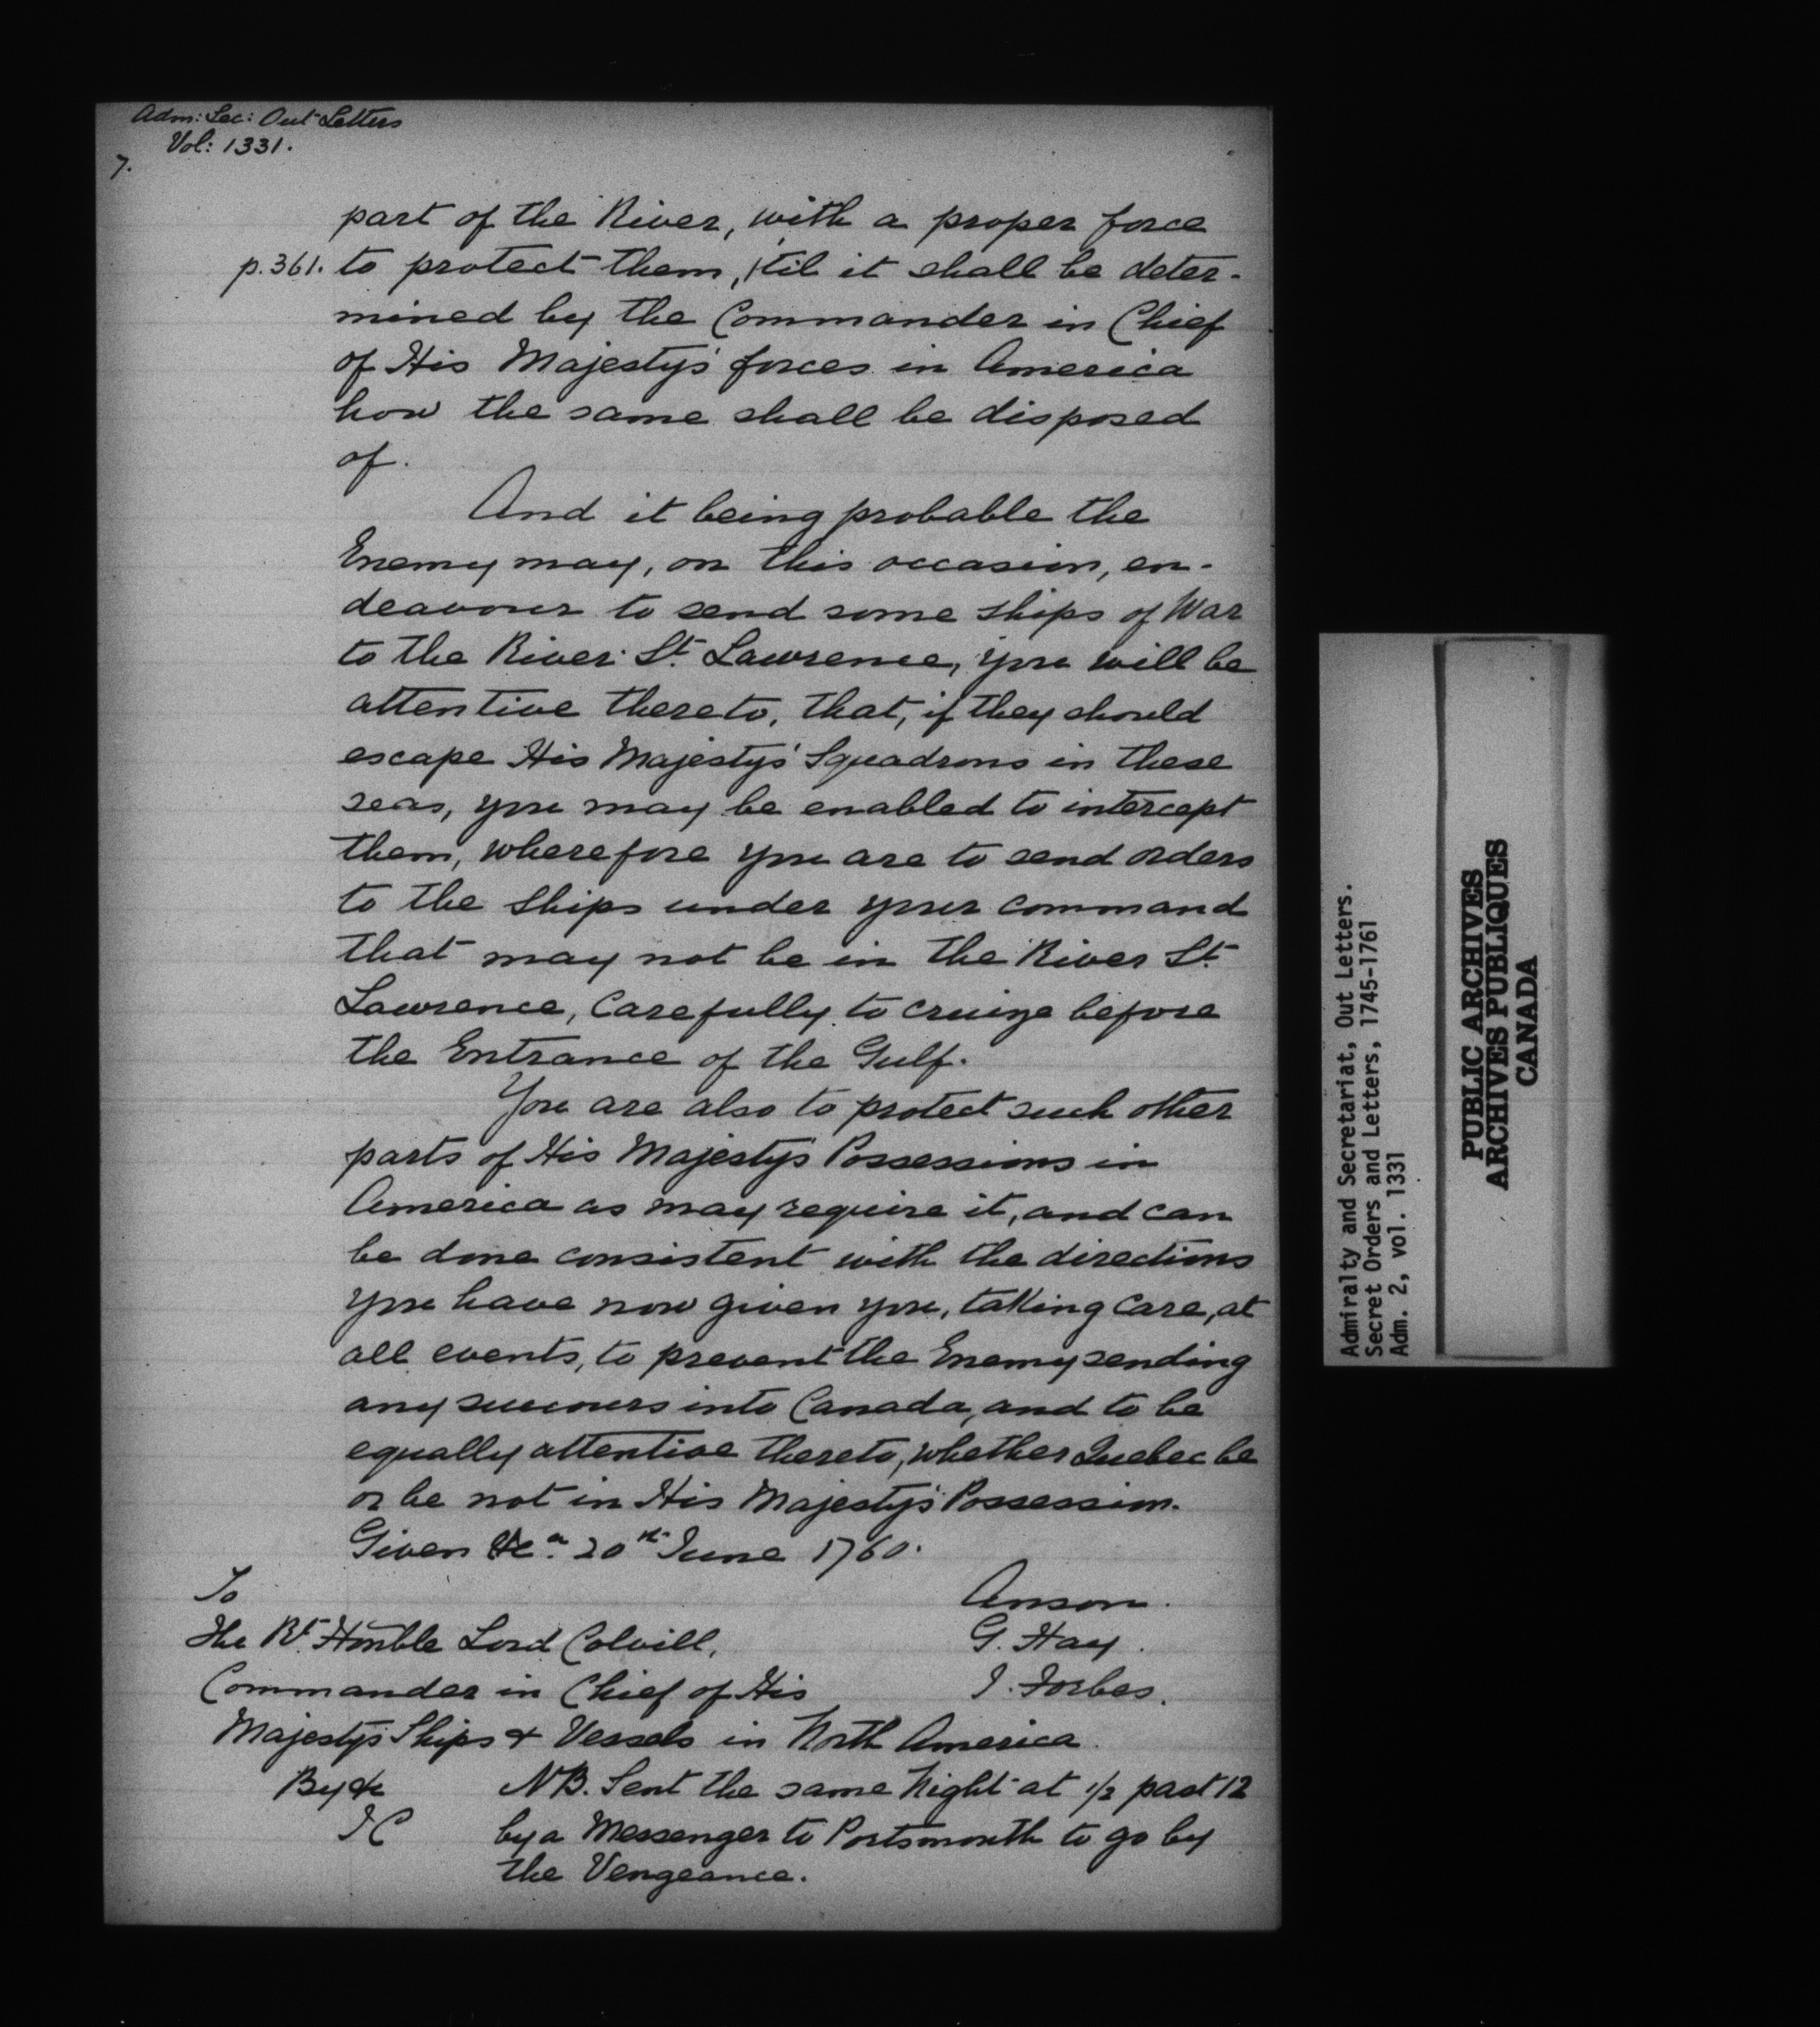 Adm: Sec: Out-Letters
Vol: 1331.
7.
part of the River, with a proper force
p.361. to protect them, 'til it shall be deter-
mined by the Commander in Chief
of His Majesty's forces in America
how the same shall be disposed
of.
And it being probable the
Enemy may, on this occasion, en-
deavour to send some Ships of War
to the River St. Lawrence, you will be
attentive thereto, that, if they should
escape His Majesty's Squadrons in these
seas, you may be enabled to intercept
them, wherefore you are to send orders
to the Ships under your command
that may not be in the River St.
Lawrence, Carefully to cruize before
the Entrance of the Gulf.
You are also to protect such other
parts of His Majesty's Possessions in
America as may require it, and can
be done consistent with the directions
you have now given you, taking Care, at
all events, to prevent the Enemy sending
any succours into Canada, and to be
equally attentive thereto, whether Quebec be
or be not in His Majesty's Possession.
Given &c.a 20th June 1760.
To
The Rt. Honble Lord Colvill,
Commander in Chief of His
Majesty's Ships & Vessels in North America.
Anson.
G. Hay.
J. Forbes.
By &c
JC
NB. Sent the same Night at 1/2 past 12
by a Messenger to Portsmouth to go by
the Vengeance.
Admiralty and Secretariat, Out Letters.
Secret Orders and Letters, 1745-1761
Adm. 2, vol. 1331
PUBLIC ARCHIVES
ARCHIVES PUBLIQUES
CANADA